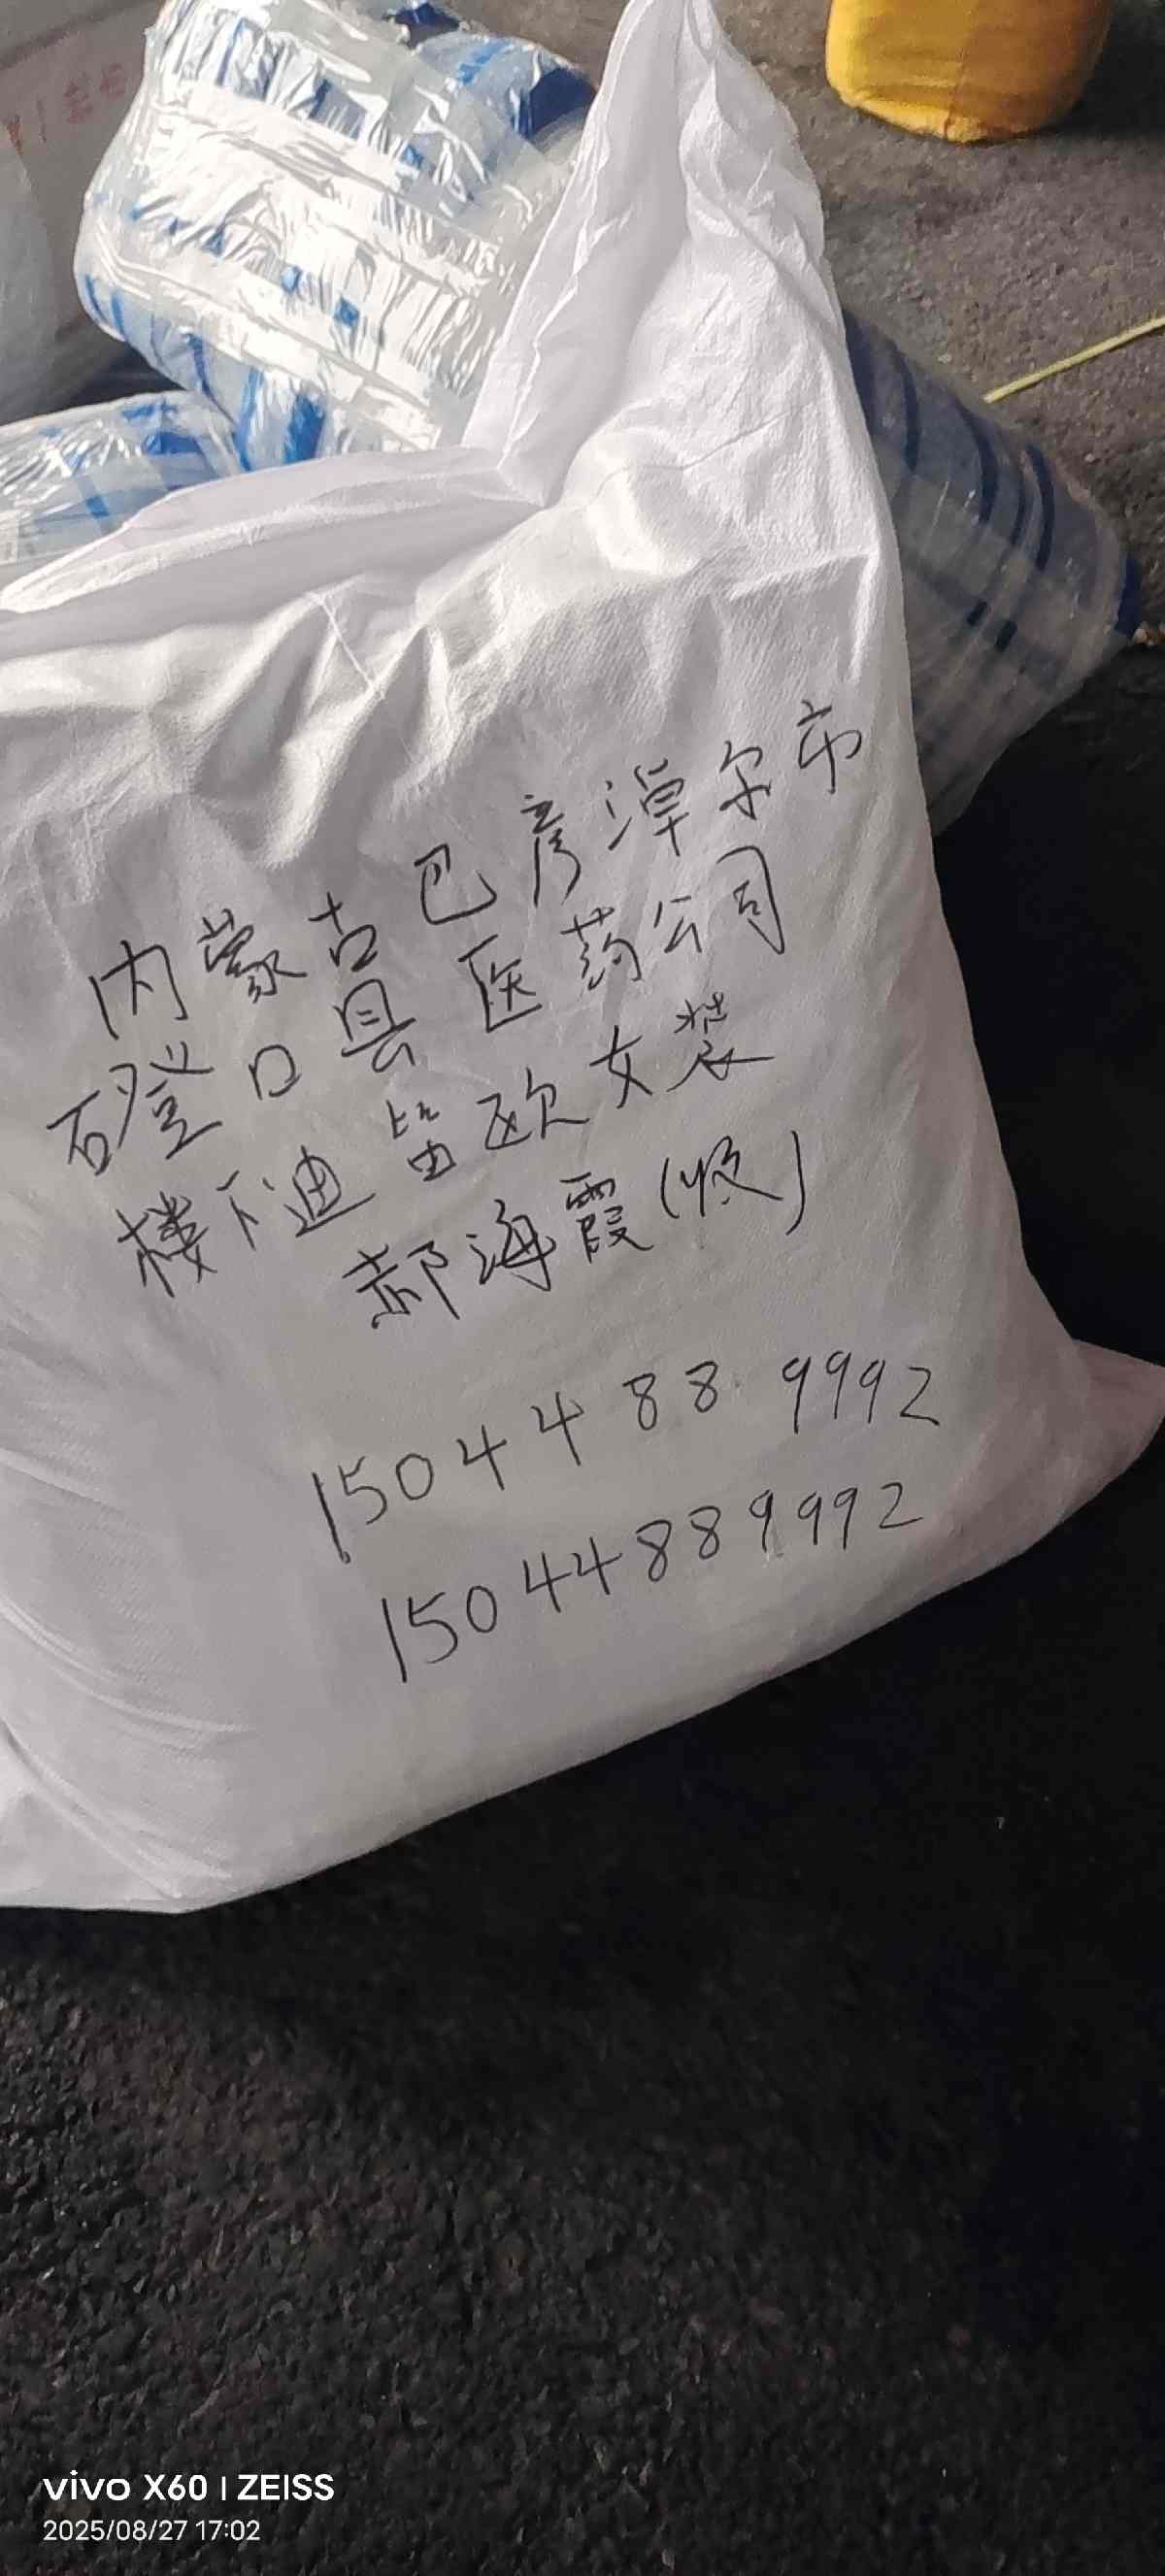 内蒙古巴彦淖尔市
磴口县医药公司
楼下迪笛欧女装
郝海霞(收)
15044889992
15044889992
vivo X60 | ZEISS
2025/08/27 17:02